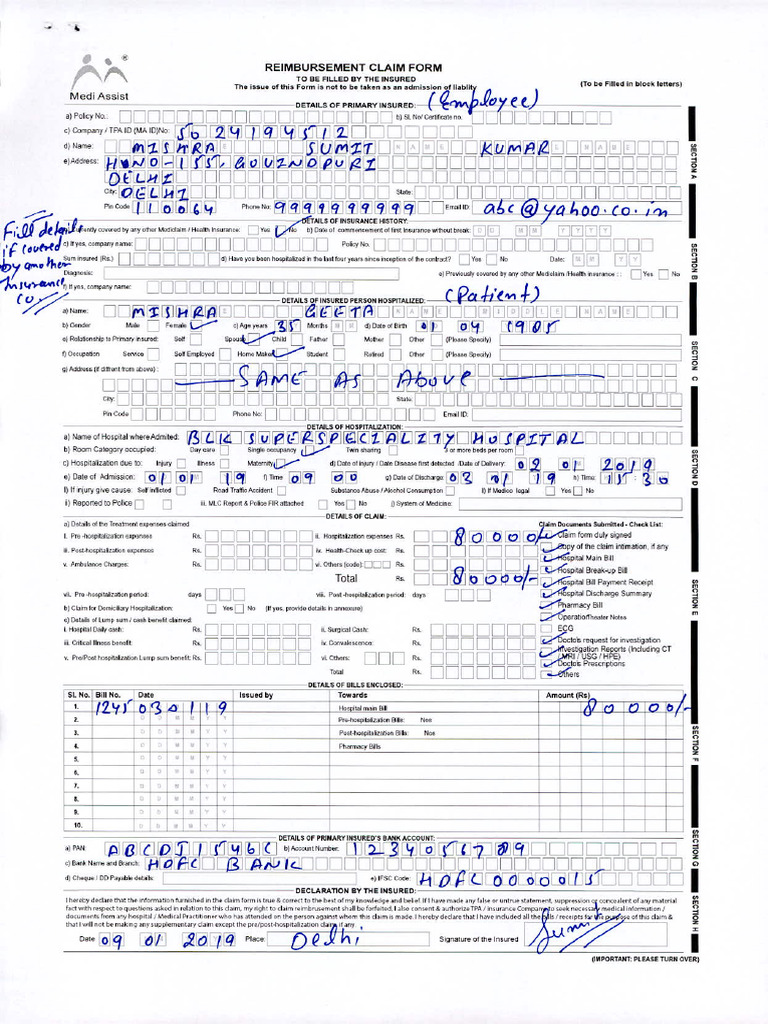 REIMBURSEMENT CLAIM FORM
TO BE FILLED BY THE INSURED
The issue of this Form is not to be taken as an admission of liablity
(To be Filled in block letters)
Medi Assist
DETAILS OF PRIMARY INSURED: (Employee)
a) Policy No.: b) SL No/ Certificate no.
c) Company / TPA ID (MA ID)No: 5024194512
d) Name: MISHRA SUMIT KUMAR
e) Address: HNO-155, GOUINDPURI
DELHI
City: DELHI State:
Pin Code 110064 Phone No: 9999999999 Email ID: abc@yahoo.co.in
DETAILS OF INSURANCE HISTORY:
Fill details if covered by another Insurance co.
Currently covered by any other Mediclaim / Health Insurance: Yes No b) Date of commencement of first Insurance without break:
c) If yes, company name: Policy No.
Sum insured (Rs.) d) Have you been hospitalized in the last four years since inception of the contract? Yes No Date:
Diagnosis: e) Previously covered by any other Mediclaim /Health insurance : : Yes No
f) If yes, company name:
DETAILS OF INSURED PERSON HOSPITALIZED: (Patient)
a) Name: MISHRA GEETA
b) Gender Male Female c) Age years 35 Months d) Date of Birth 01 04 1985
e) Relationship to Primary insured: Self Spouse Child Father Mother Other (Please Specify)
f) Occupation Service Self Employed Home Maker Student Retired Other (Please Specify)
g) Address (if diffrent from above) : SAME AS ABOVE
City: State:
Pin Code Phone No: Email ID:
DETAILS OF HOSPITALIZATION:
a) Name of Hospital where Admited: BLK SUPERSPECIALITY HOSPITAL
b) Room Category occupied: Day care Single occupancy Twin sharing 3 or more beds per room
c) Hospitalization due to: Injury Illness Maternity d) Date of injury / Date Disease first detected /Date of Delivery: 02 01 2019
e) Date of Admission: 01 01 19 f) Time 09 00 g) Date of Discharge: 03 01 19 h) Time: 15 30
I) If injury give cause: Self inflicted Road Traffic Accident Substance Abuse / Alcohol Consumption I) If Medico legal Yes No
ii) Reported to Police iii. MLC Report & Police FIR attached Yes No j) System of Medicine:
DETAILS OF CLAIM:
a) Details of the Treatment expenses claimed
I. Pre -hospitalization expenses Rs. ii. Hospitalization expenses Rs. 80000/-
iii. Post-hospitalization expenses Rs. iv. Health-Check up cost: Rs.
v. Ambulance Charges: Rs. vi. Others (code): Rs.
Total Rs. 80000/-
vii. Pre -hospitalization period: days viii. Post -hospitalization period: days
b) Claim for Domiciliary Hospitalization: Yes No (If yes, provide details in annexure)
c) Details of Lump sum / cash benefit claimed:
i. Hospital Daily cash: Rs. ii. Surgical Cash: Rs.
iii. Critical Illness benefit: Rs. iv. Convalescence: Rs.
v. Pre/Post hospitalization Lump sum benefit: Rs. vi. Others: Rs.
Claim Documents Submitted - Check List:
Claim form duly signed
Copy of the claim intimation, if any
Hospital Main Bill
Hospital Break-up Bill
Hospital Bill Payment Receipt
Hospital Discharge Summary
Pharmacy Bill
Operation Theater Notes
ECG
Doctor's request for investigation
Investigation Reports (Including CT / MRI / USG / HPE)
Doctor's Prescriptions
Others
DETAILS OF BILLS ENCLOSED:
Sl. No. Bill No. Date Issued by Towards Amount (Rs)
1. 1245 030119 Hospital main Bill 80000/-
2. Pre-hospitalization Bills: Nos
3. Post-hospitalization Bills: Nos
4. Pharmacy Bills
5.
6.
7.
8.
9.
10.
DETAILS OF PRIMARY INSURED'S BANK ACCOUNT:
a) PAN: ABCDJ1546C b) Account Number: 1234056789
c) Bank Name and Branch: HDFC BANK
d) Cheque / DD Payable details: e) IFSC Code: HDFC0000015
DECLARATION BY THE INSURED:
I hereby declare that the information furnished in the claim form is true & correct to the best of my knowledge and belief. If I have made any false or untrue statement, suppression or concealment of any material
fact with respect to questions asked in relation to this claim, my right to claim reimbrusement shall be forfeited. I also consent & authorize TPA / insurance Company to seek necessary medical information /
documents from any hospital / Medical Practitioner who has attended on the person against whom this claim is made. I hereby declare that I have included all the bills / receipts for the purpose of this claim &
that I will not be making any supplementary claim except the pre/post-hospitalization claim, if any.
Date 09 01 2019 Place: Delhi Signature of the Insured Sumit
(IMPORTANT: PLEASE TURN OVER)
SECTION A
SECTION B
SECTION C
SECTION D
SECTION E
SECTION F
SECTION G
SECTION H